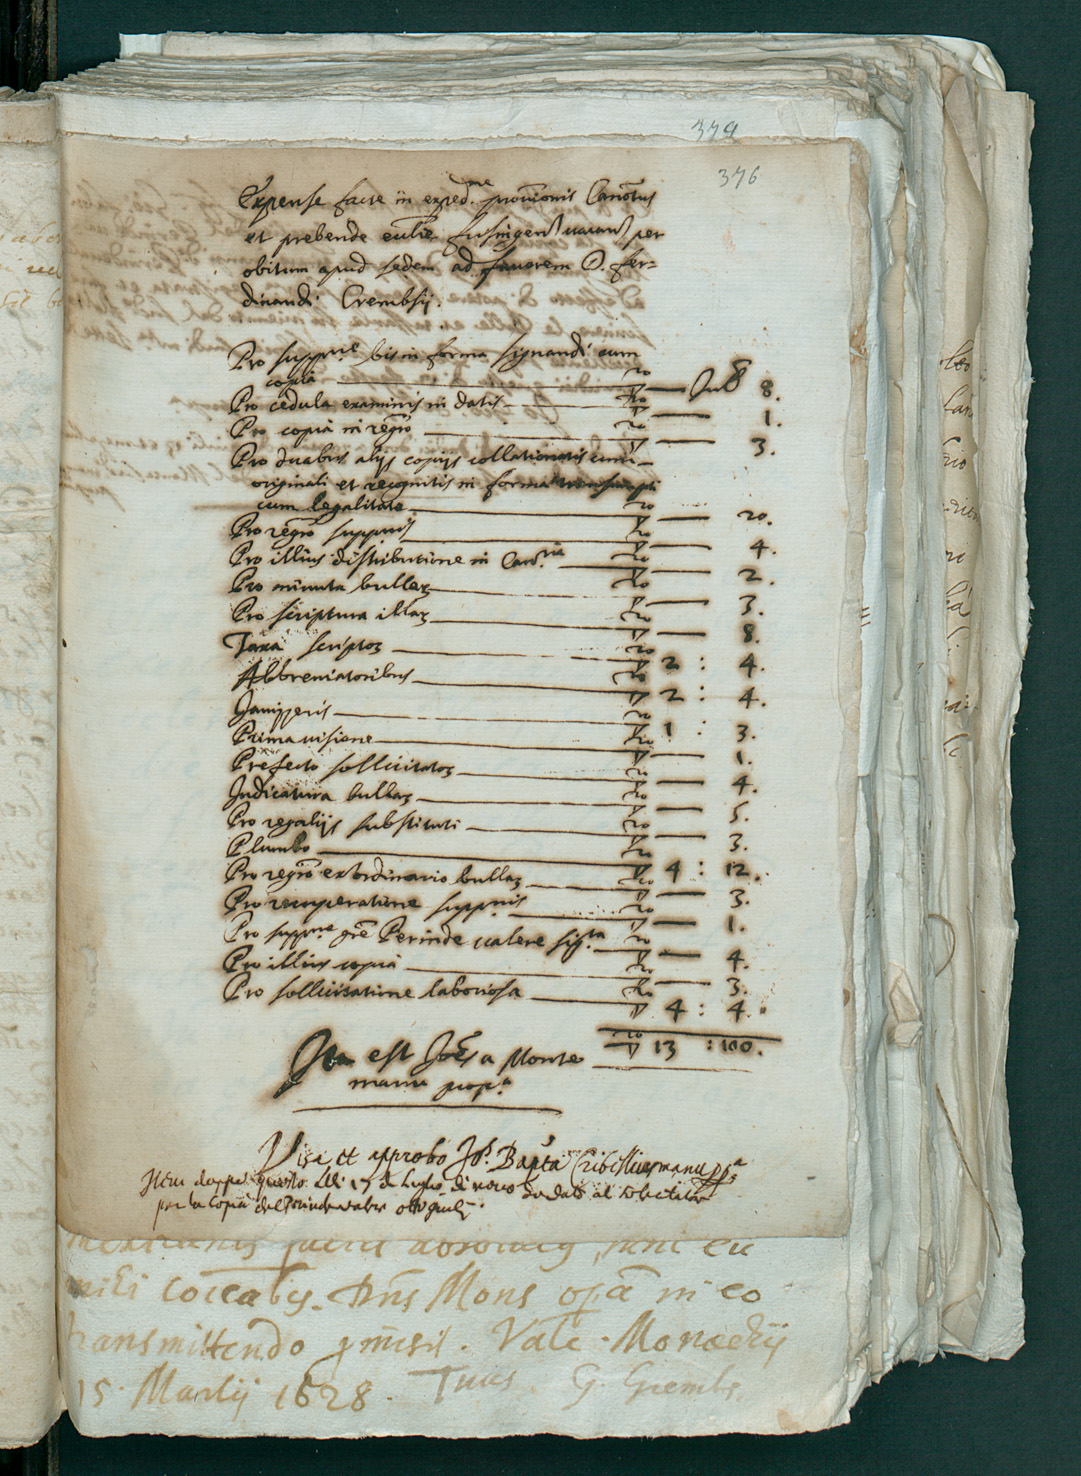 379
376
Expense facte in exped.ne provisionis Canotus
et prebende ecctie frisingen vacan per
obitum apud sedem ad favorem D. fer=
dinandi Crembsij.
Pro suppne bis in forma signandi cum
copia Jul 8.
Pro cedula examinis in datis 1.
Pro copia in regro 3.
Pro duabus alijs copijs collationatis cum
originali et recognitis in forma transumpti
cum legalitate 20.
Pro regro suppnis 4.
Pro illius distributione in Canria 2.
Pro minuta bullaz 3.
Pro scriptura illaz 8.
Taxa scriptoz 2 : 4.
Abbreviatoribus 2 : 4.
Janizzeris 1 : 3.
Prima visione 1.
Prefecto sollicitatoz 4.
Judicatura bullaz 5.
Pro regalijs substituti 3.
Plumbo 4 : 12.
Pro regro extordinario bullaz 3.
Pro recuperatione suppnis 1.
Pro suppne gre Perinde valere sigta 4.
Pro illius copia 3.
Pro sollicitatione laboriosa 4 : 4.
13 : 100.
Ita est Joes a Monte
manu prop.a
Visa et approbo Jo. Bapta Cribellius manu ppa
Item doppo questo alli 17 di luglio di novo do dato al solecitator
per la copia del Perinde valere otto giulij.
factis
mihi coicabis. Dns Mons opa in eo
transmittendo pmisit. Vale. Monachij
15. Martij 1628. Tuus G. Grembs.